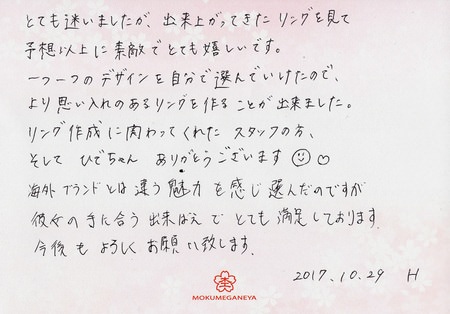 とても迷いましたが、出来上がってきたリングを見て
予想以上に素敵でとても嬉しいです。
一つ一つのデザインを自分で選んでいけたので、
より思い入れのあるリングを作ることが出来ました。
リング作成に関わってくれたスタッフの方、
そして ひでちゃん ありがとうございます ☺ ♡
海外ブランドとは違う魅力を感じ選んだのですが
彼女の手に合う出来ばえでとても満足しております.
今後もよろしくお願い致します.
2017.10.29 H
MOKUMEGANEYA